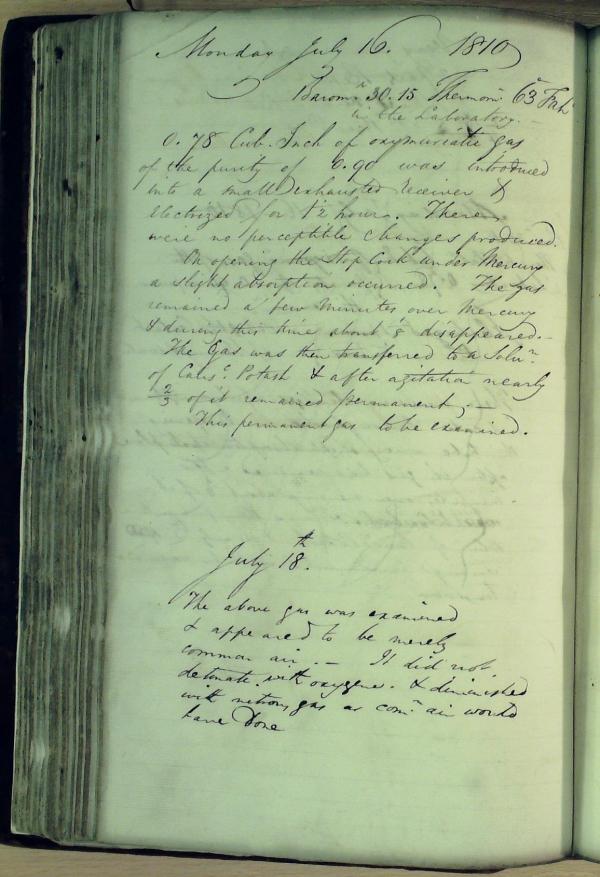 Monday July 16. 1810
Barom.r 30.15 Thermom.r 63° Fah.t
in the Laboratory.
0.78 Cub. Inch of oxymuriatic gas
of the purity of 0.90 was introduced
into a small exhausted receiver &
electrized for 1/2 hour. There
were no perceptible changes produced.
On opening the Stop Cock under Mercury
a slight absorption occurred. The gas
remained a few minutes over Mercury
& during this time about 1/8 disappeared.—
The Gas was then transferred to a Solu.n
of Caus.c Potash & after agitation nearly
2/3 of it remained permanent, —
This permanent gas to be examined.
July 18.th
The above gas was examined
& appeared to be merely
common air. — It did not
detonate with oxygene. & diminished
with nitrous gas as com.n air would
have done